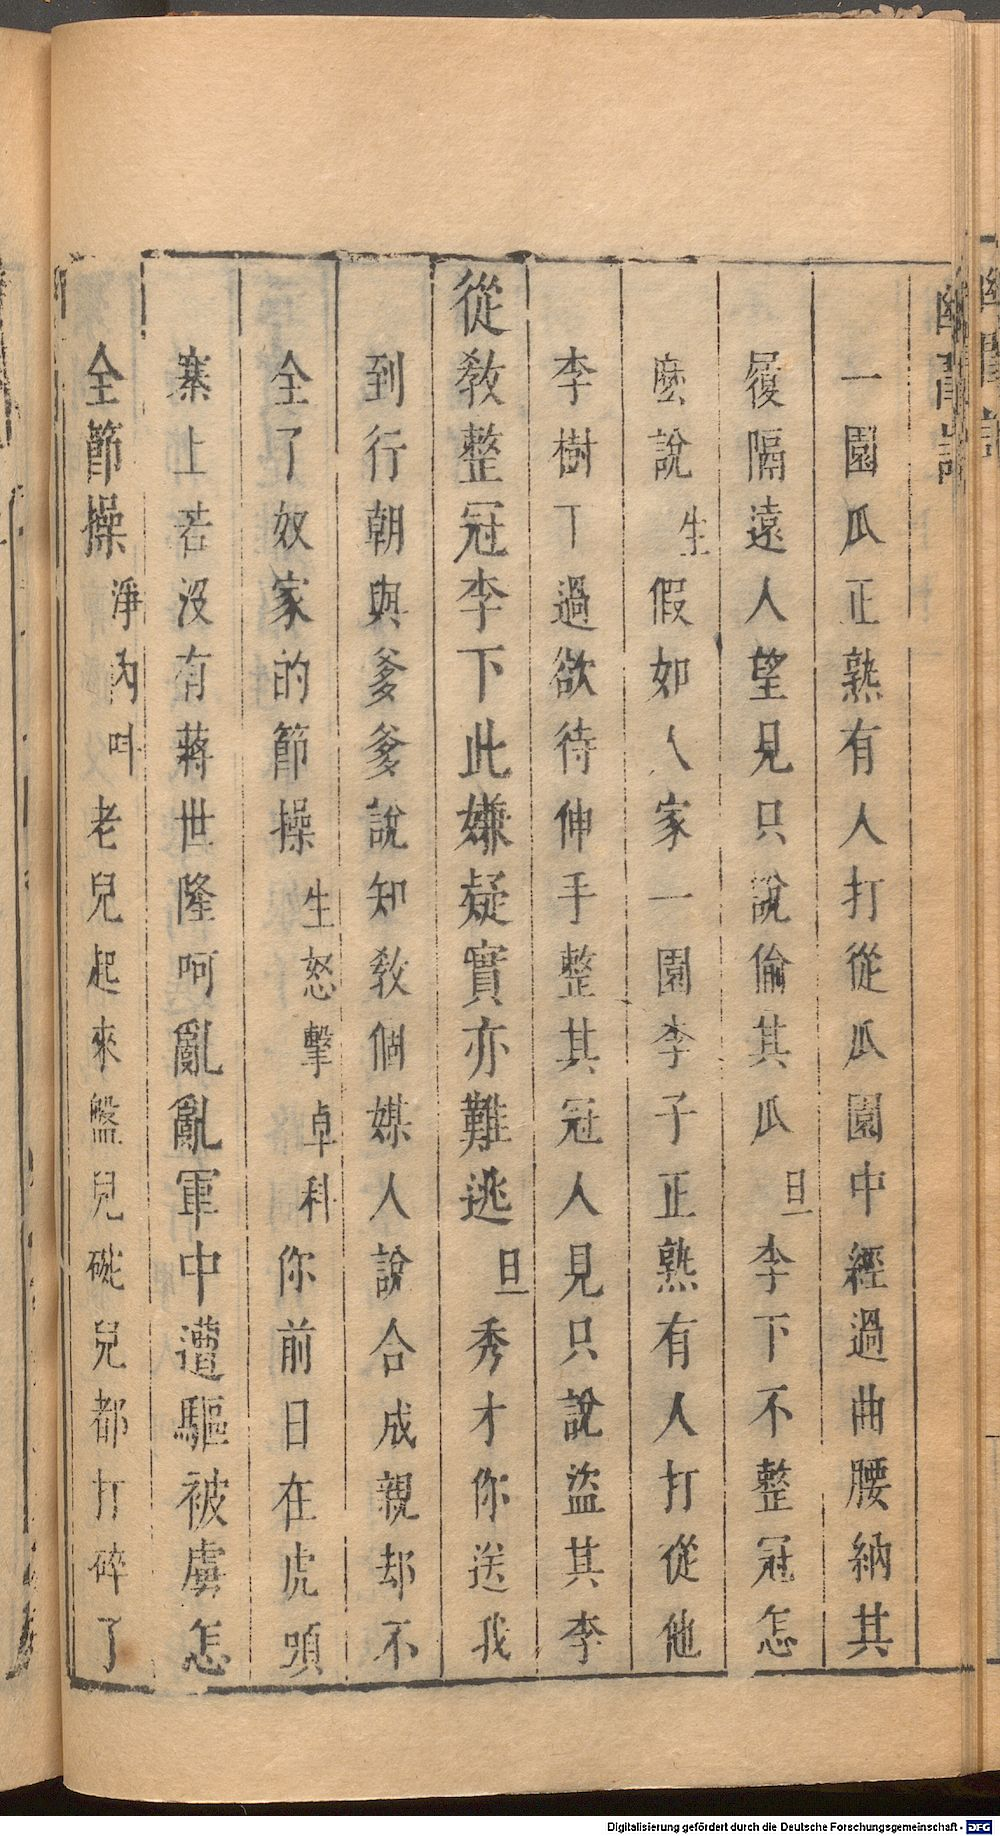 幽閨記
一園瓜正熟有人打從瓜園中經過曲腰納其
履隔遠人望見只說偷其瓜旦李下不整冠怎
麽說生假如人家一園李子正熟有人打從他
李樹下過欲待伸手整其冠人見只說盜其李
從教整冠李下此嫌疑實亦難逃旦秀才你送我
到行朝與爹爹說知教個媒人說合成親却不
全了奴家的節操生怒擊卓科你前日在虎頭
寨上若沒有蔣世隆呵亂亂軍中遭驅被虜怎
全節操淨內呌老兒起來盤兒碗兒都打碎了
Digitalisierung gefördert durch die Deutsche Forschungsgemeinschaft - DFG